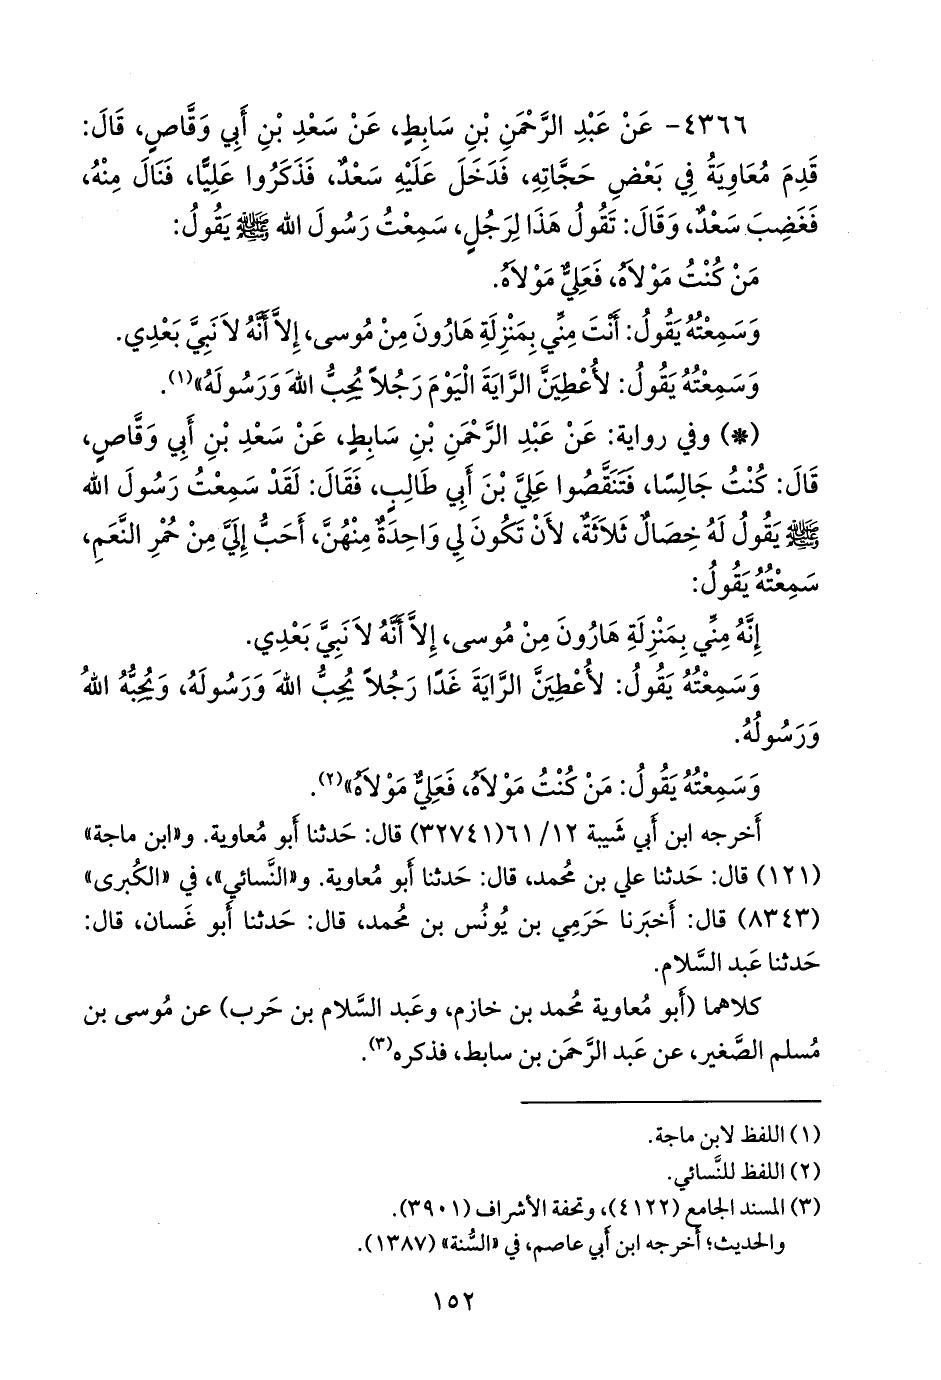 ٤٣٦٦- عَنْ عَبْدِ الرَّحْمَنِ بْنِ سَابِطٍ، عَنْ سَعْدِ بْنِ أَبِي وَقَّاصٍ، قَالَ:
قَدِمَ مُعَاوِيَةُ فِي بَعْضِ حَجَّاتِهِ، فَدَخَلَ عَلَيْهِ سَعْدٌ، فَذَكَرُوا عَلِيًّا، فَنَالَ مِنْهُ،
فَغَضِبَ سَعْدٌ، وَقَالَ: تَقُولُ هَذَا لِرَجُلٍ، سَمِعْتُ رَسُولَ الله ﷺ يَقُولُ:
مَنْ كُنْتُ مَوْلاَهُ، فَعَلِيٌّ مَوْلاَهُ.
وَسَمِعْتُهُ يَقُولُ: أَنْتَ مِنِّي بِمَنْزِلَةِ هَارُونَ مِنْ مُوسى، إِلاَّ أَنَّهُ لاَ نَبِيَّ بَعْدِي.
وَسَمِعْتُهُ يَقُولُ: لأُعْطِيَنَّ الرَّايَةَ الْيَوْمَ رَجُلاً يُحِبُّ اللهَ وَرَسُولَهُ»(١).
(*) وفي رواية: عَنْ عَبْدِ الرَّحْمَنِ بْنِ سَابِطٍ، عَنْ سَعْدِ بْنِ أَبِي وَقَّاصٍ،
قَالَ: كُنْتُ جَالِسًا، فَتَنَقَّصُوا عَلِيَّ بْنَ أَبِي طَالِبٍ، فَقَالَ: لَقَدْ سَمِعْتُ رَسُولَ الله
ﷺ يَقُولُ لَهُ خِصَالٌ ثَلاَثَةٌ، لأَنْ تَكُونَ لِي وَاحِدَةٌ مِنْهُنَّ، أَحَبُّ إِلَيَّ مِنْ حُمْرِ النَّعَمِ،
سَمِعْتُهُ يَقُولُ:
إِنَّهُ مِنِّي بِمَنْزِلَةِ هَارُونَ مِنْ مُوسى، إِلاَّ أَنَّهُ لاَ نَبِيَّ بَعْدِي.
وَسَمِعْتُهُ يَقُولُ: لأُعْطِيَنَّ الرَّايَةَ غَدًا رَجُلاً يُحِبُّ اللهَ وَرَسُولَهُ، وَيُحِبُّهُ اللهُ
وَرَسُولُهُ.
وَسَمِعْتُهُ يَقُولُ: مَنْ كُنْتُ مَوْلاَهُ، فَعَلِيٌّ مَوْلاَهُ»(٢).
أَخرجه ابن أَبي شَيبة ١٢/ ٦١(٣٢٧٤١) قال: حَدثنا أَبو مُعاوية. و«ابن ماجة»
(١٢١) قال: حَدثنا علي بن مُحمد، قال: حَدثنا أَبو مُعاوية. و«النَّسائي»، في «الكُبرى»
(٨٣٤٣) قال: أَخبَرنا حَرَمِي بن يُونُس بن مُحمد، قال: حَدثنا أَبو غَسان، قال:
حَدثنا عَبد السَّلام.
كلاهما (أَبو مُعاوية مُحمد بن خازم، وعَبد السَّلام بن حَرب) عن مُوسى بن
مُسلم الصَّغير، عن عَبد الرَّحمَن بن سابط، فذكره(٣).
(١) اللفظ لابن ماجة.
(٢) اللفظ للنَّسائي.
(٣) المسند الجامع (٤١٢٢)، وتحفة الأشراف (٣٩٠١).
والحديث؛ أَخرجه ابن أَبي عاصم، في «السُّنة» (١٣٨٧).
١٥٢